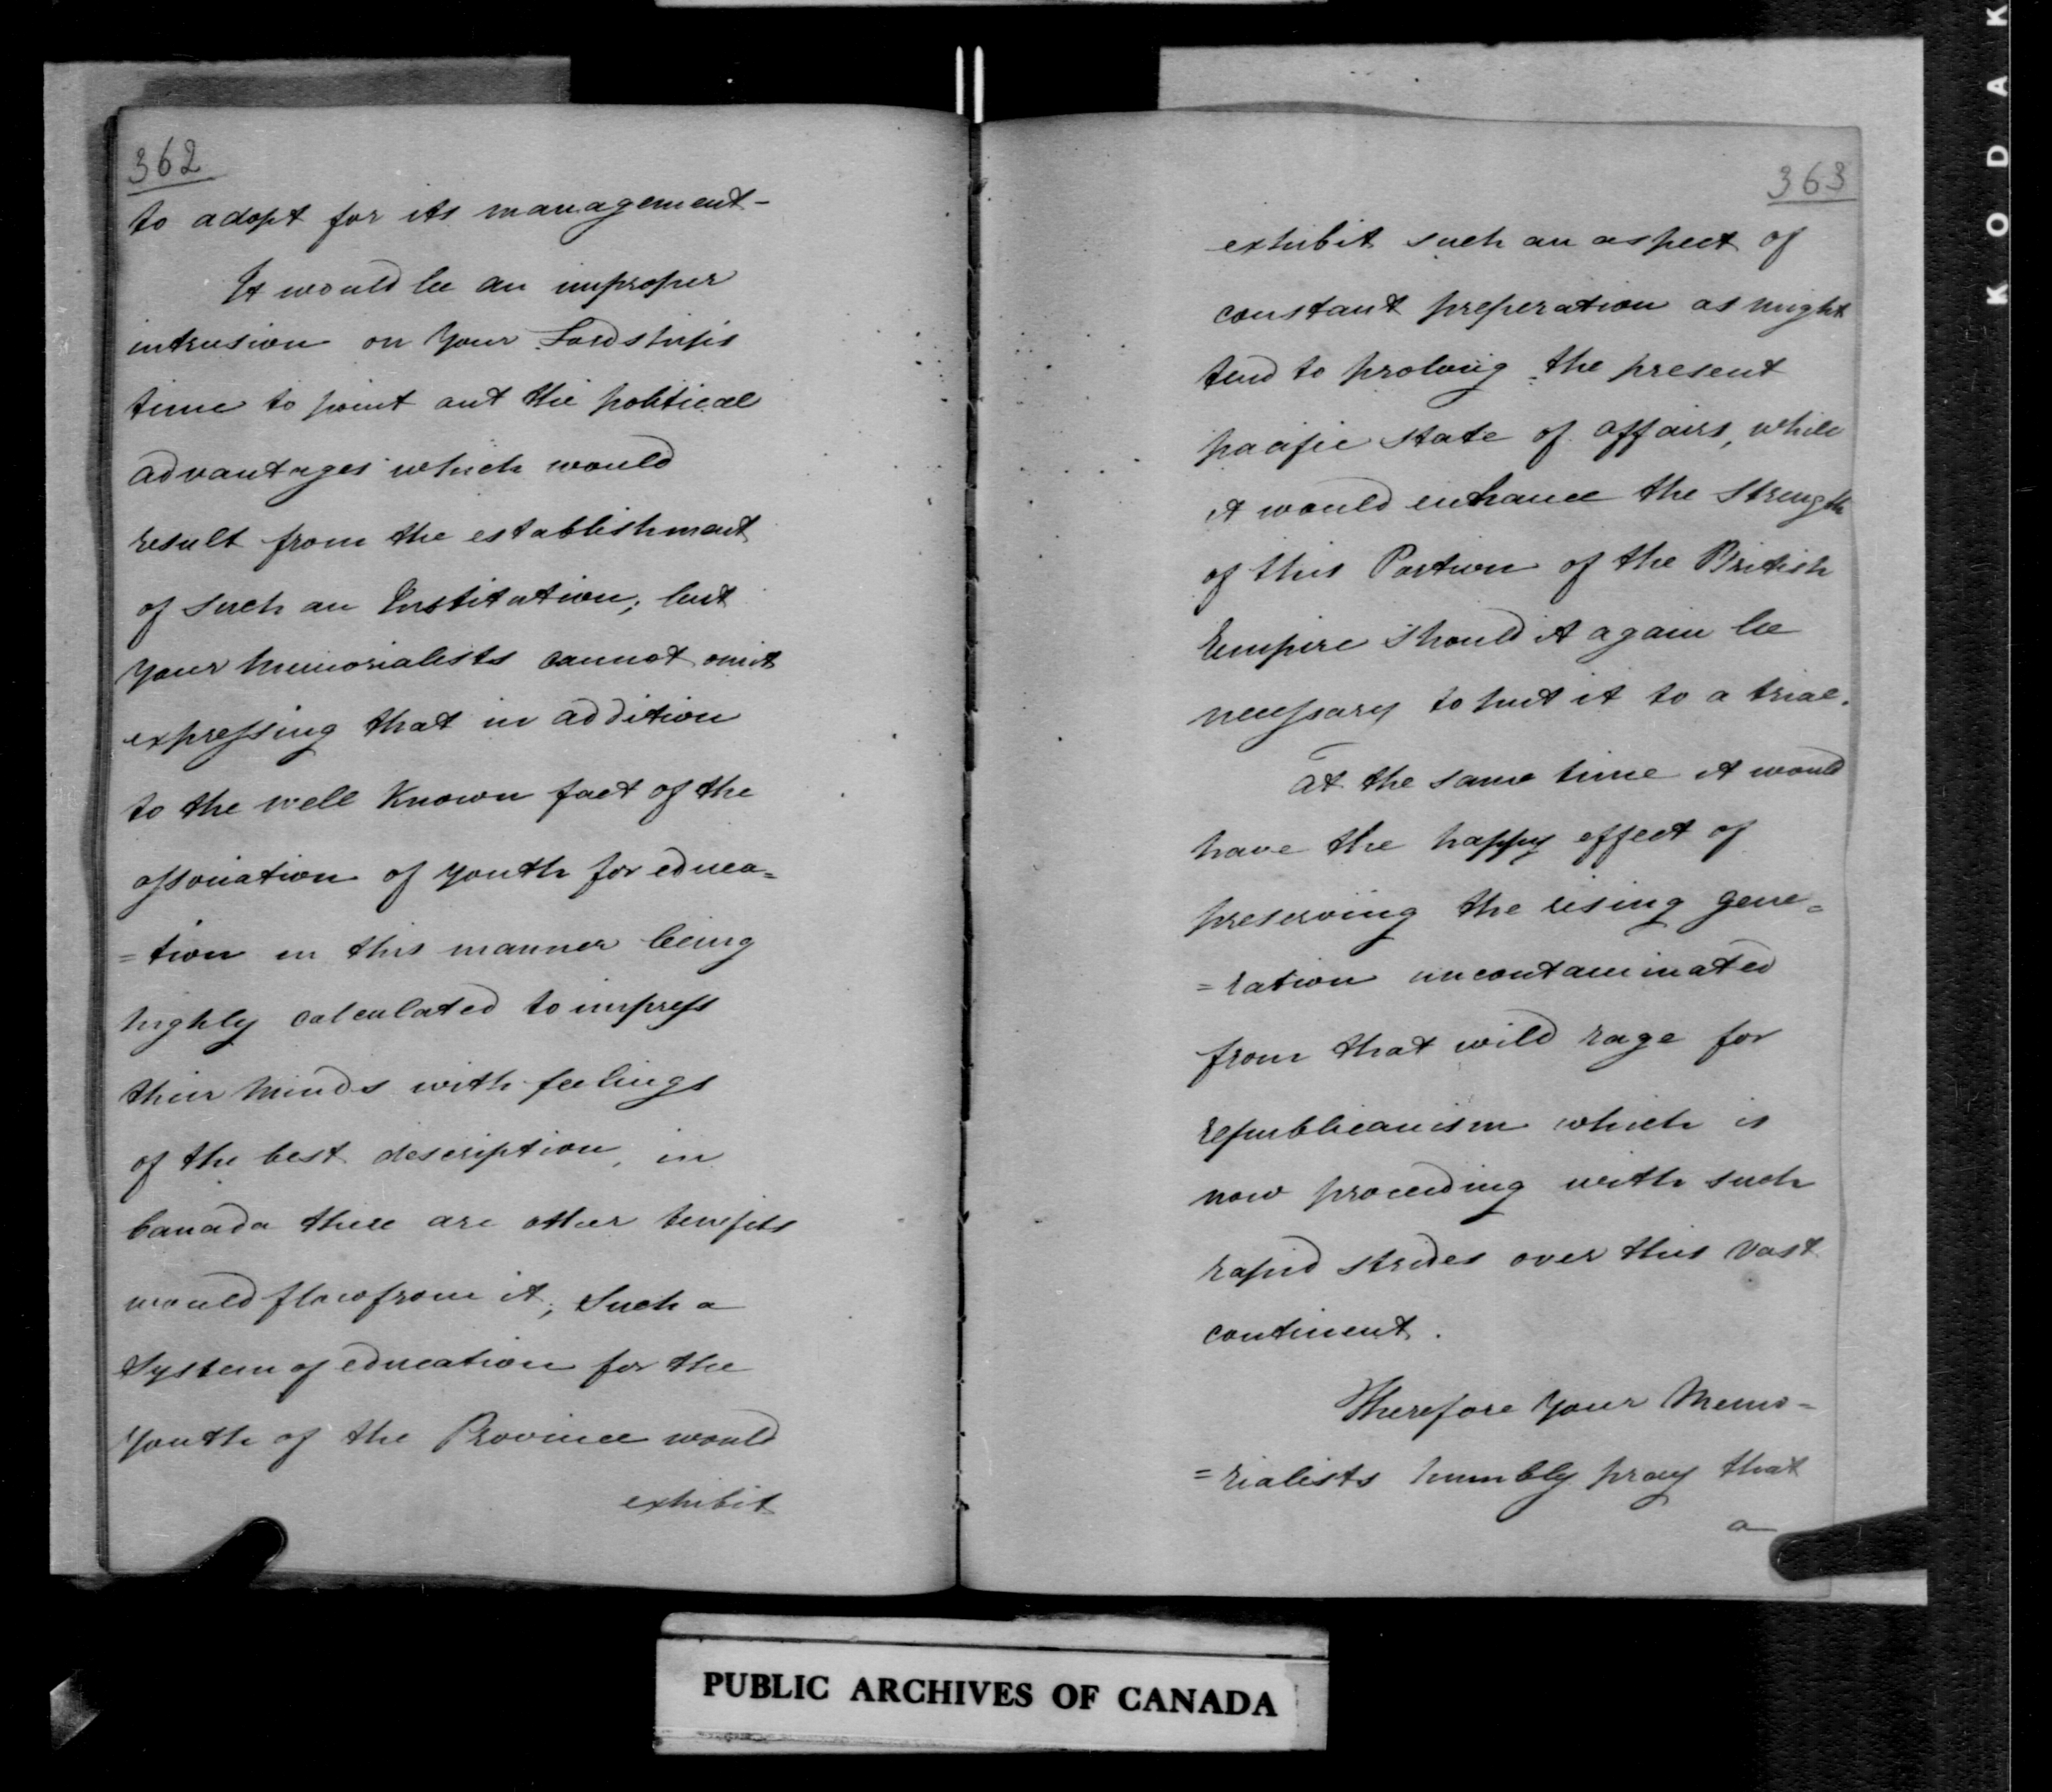 362
to adopt for its management-
It would be an improper
intrusion on Your Lordships
time to point out the political
advantages which would
result from the establishment
of such an Institution; but
Your Memorialists cannot omit
expressing that in addition
to the well known fact of the
association of youth for educa=
=tion in this manner being
highly calculated to impress
their minds with feelings
of the best description, in
Canada there are other benefits
would flow from it; Such a
System of education for the
Youth of the Province would
exhibit
363
exhibit such an aspect of
constant preperation as might
tend to prolong the present
pacific state of affairs, while
it would enhance the Strength
of this Portion of the British
Empire should it again be
necessary to put it to a trial.
At the same time it would
have the happy effect of
preserving the rising gene=
=ration uncontaminated
from that wild rage for
republicanism which is
now proceeding with such
rapid strides over this vast
continent.
Therefore Your Memo=
=rialists humbly pray that
a
PUBLIC ARCHIVES OF CANADA
KODAK